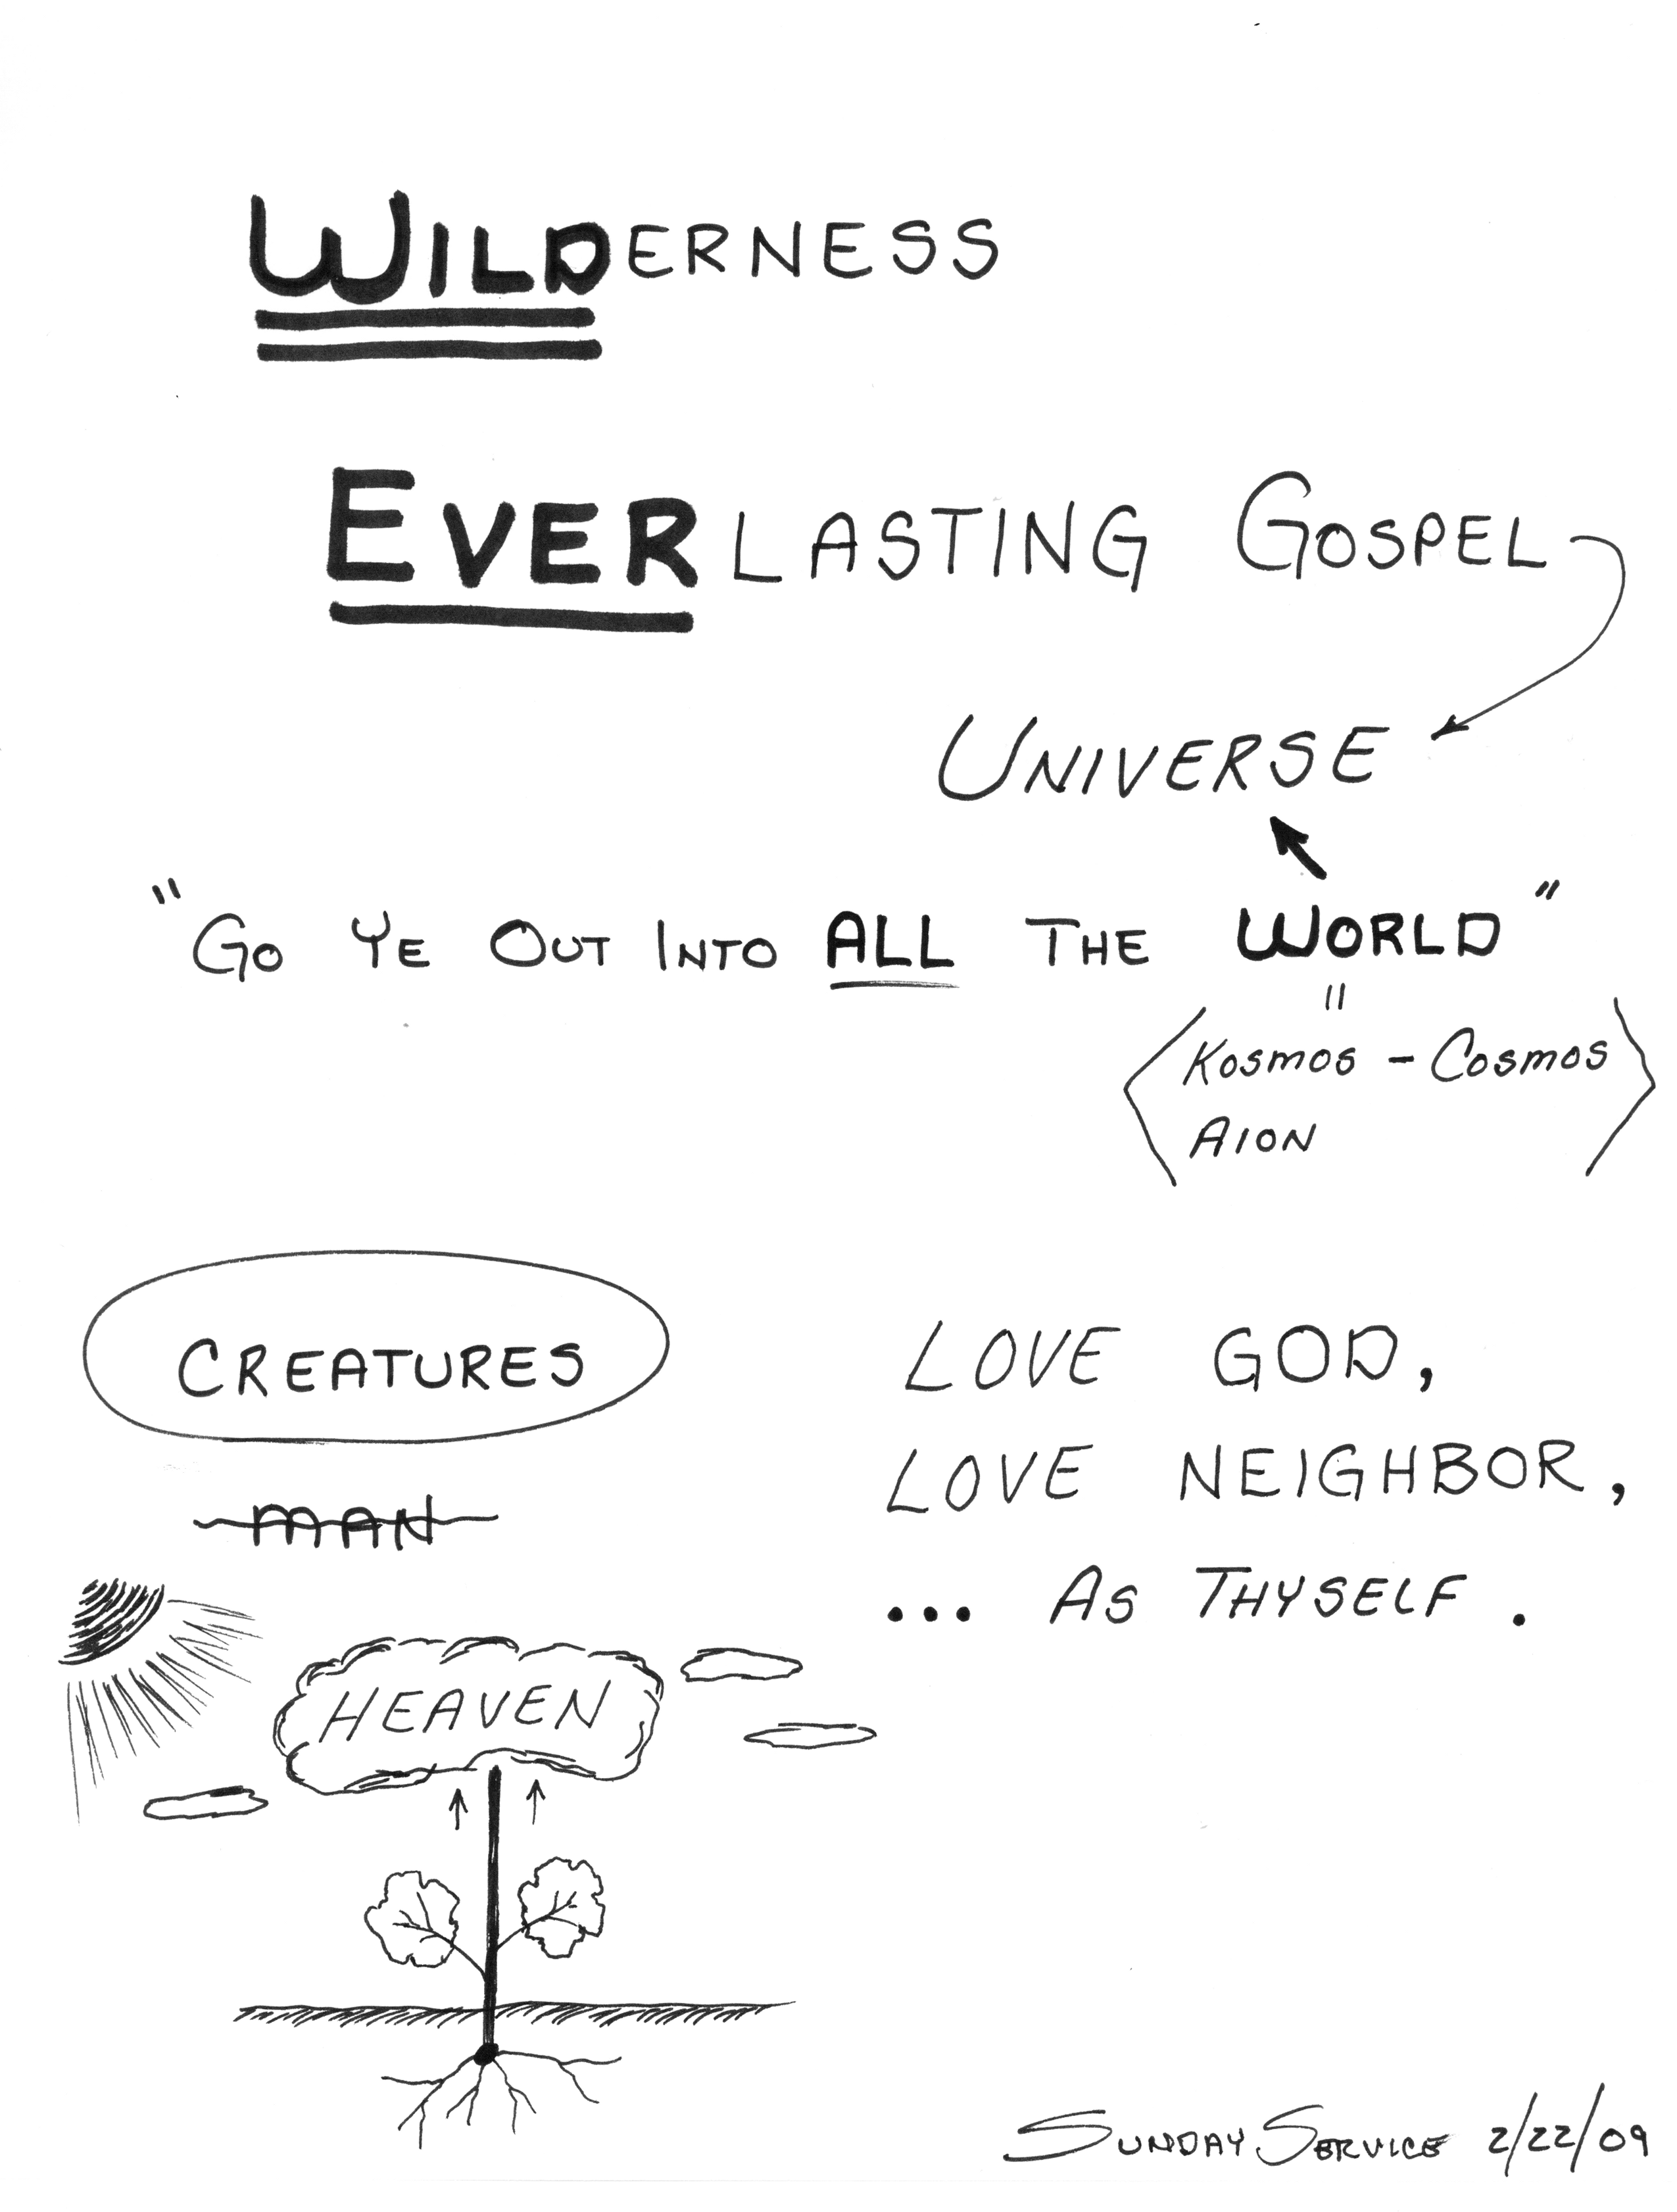 WILDERNESS
EVERLASTING GOSPEL
UNIVERSE
"GO YE OUT INTO ALL THE WORLD"
KOSMOS - COSMOS
AION
CREATURES
MAN
LOVE GOD,
LOVE NEIGHBOR,
... AS THYSELF.
HEAVEN
SUNDAY SERVICE 2/22/09